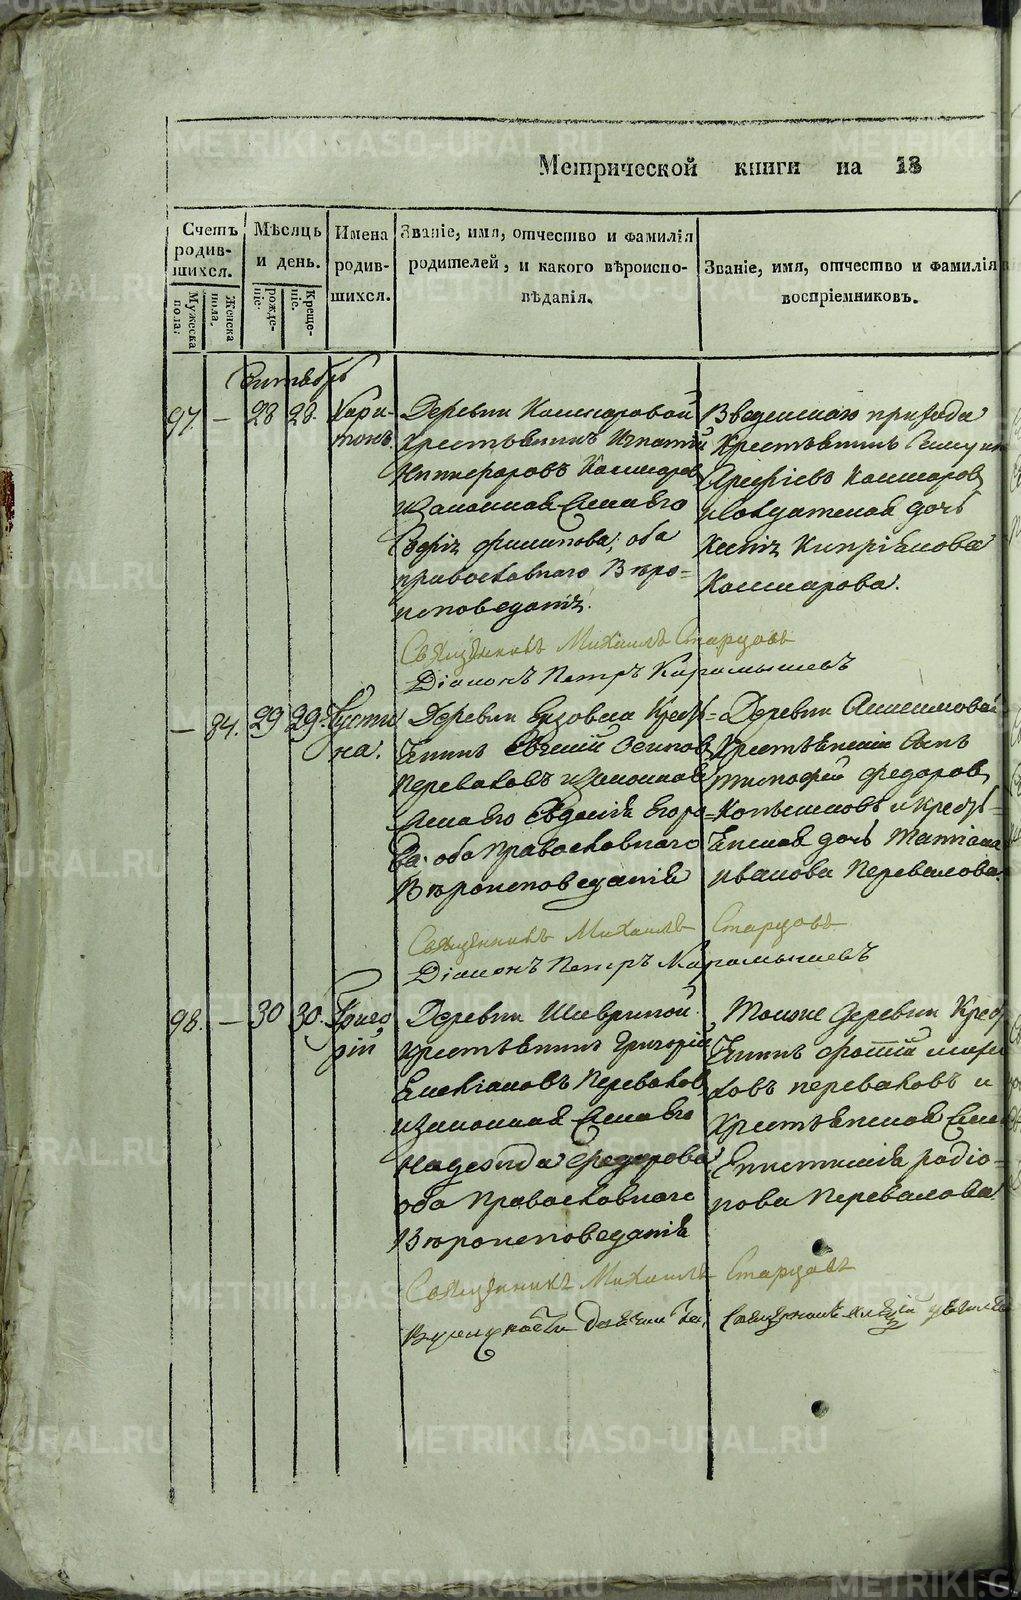 Метрической книги на 18
Счетъ родившихся.
Мужеска пола.
Женска пола.
Мѣсяць и день.
рожденіе.
Крещеніе.
Имена родившихся.
Званіе, имя, отчество и фамилія
родителей, и какого вѣроиспо-
вѣданія.
Званіе, имя, отчество и фамилія
воспріемниковъ.
97. — 28 28. Хари-
тонъ.
Деревни Кашкаровой
крестьянинъ Игнатій
Никифоровъ Кашкаровъ
и законная жена его
Софія Филипова; оба
православнаго Веро-
исповеданія.
крестьянинъ
Арефіевъ Кашкаровъ
и солдатская дочь
Ксенія Кипріянова
Кашкарова.
Священникъ Михаилъ Старцовъ
Діаконъ Петръ Карамышевъ
— 84. 29 29. Іусти
на.
Деревни Крестъ-
янинъ Осиповъ
Переваловъ и законная
жена его Евдокія Егоро-
ва. оба православнаго
Вероисповеданія
Деревни Анисимовой
Крестьянскій сынъ
Тимофей Федоровъ
и крестъ-
янская дочь Татіана
Иванова Перевалова.
Священникъ Михаилъ Старцовъ
Діаконъ Петръ Карамышевъ
98. — 30 30. Григо
рій
Деревни Шавриной
крестьянинъ Григорій
Переваловъ
и законная жена его
Надежда Федорова
оба православнаго
Вероисповеданія
Тоиже деревни Крестъ
янинъ Фотій
ловъ переваловъ и
Крестьянская жена
родіо-
нова Перевалова.
Священникъ Михаилъ Старцовъ
METRIKI.GASO-URAL.RU